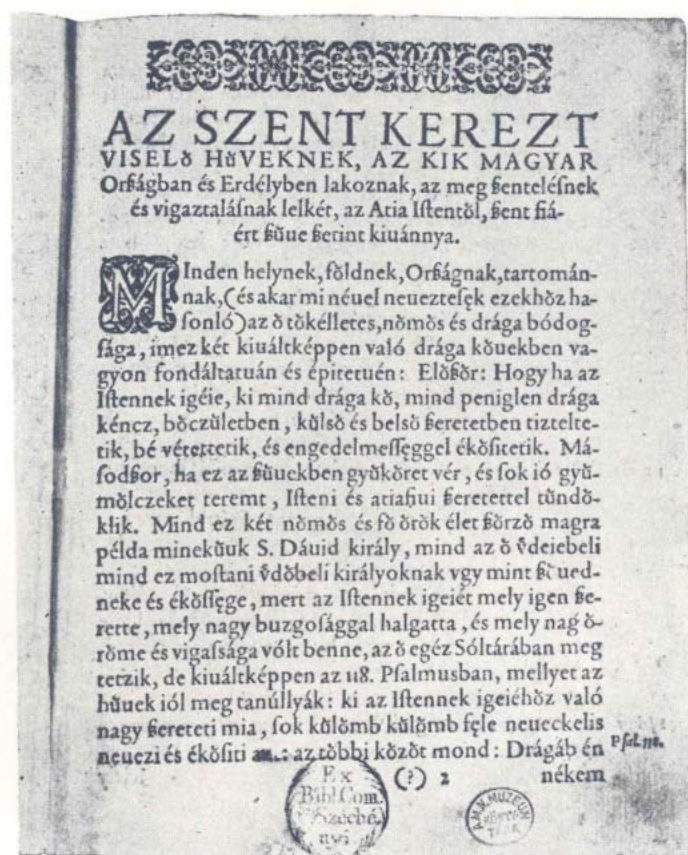 AZ SZENT KEREZT
VISELŐ HŰVEKNEK, AZ KIK MAGYAR
Orßágban és Erdélyben lakoznak, az meg ßenteléſnek
és vigaztaláſnak lelkét, az Atia Iſtentöl, ßent fiá-
ért ßűue ßerint kiuánnya.
MInden helynek, földnek, Orßágnak, tartomán-
nak, (és akar mi néuel neuezteſęk ezekhöz ha-
ſonló) az ö tökélletes, nömös és drága bódog-
ſága, imez két kiuáltképpen való drága köuekben va-
gyon fondáltatuán és épitetuén: Elößör: Hogy ha az
Iſtennek igéie, ki mind drága kö, mind peniglen drága
kéncz, böczületben, külsö és belsö ßeretetben tiztelte-
tik, bé vétettetik, és engedelmeſſęggel éköſitetik. Má-
ſodßor, ha ez az ßűuekben gyüköret vér, és ſok ió gyü-
mölczeket teremt, Iſteni és atiafiui ßeretettel tündö-
klik. Mind ez két nömös és fö örök élet ßörzö magra
példa minekűuk S. Dáuid király, mind az ö űdeiebeli
mind ez moſtani űdöbeli királyoknak vgy mint ued-
neke és ékößęge, mert az Iſtennek igeiét mely igen ße-
rette, mely nagy buzgoſággal halgatta, és mely nag ö-
röme és vigaſsága vólt benne, az ö egéz Sóltárában meg
tetzik, de kiuáltképpen az 118. Pſalmusban, mellyet az
hűuek iól meg tanúllyák: ki az Iſtennek igeiéhöz való
nagy ßereteti mia, ſok külömb külömb fęle neueckelis
neuezi és éköſiti az többi közöt mond: Drágáb én
Pſal. 118.
(?) 2 nékem
Ex
Bibl. Com.
Széché-
nyi
MUZEUM
KÖNYV
TÁRA